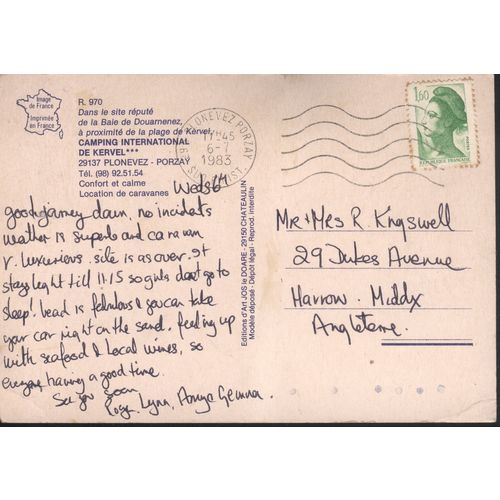 Image
de France
Imprimée
en France
R. 970
Dans le site réputé
de la Baie de Douarnenez,
à proximité de la plage de Kervel
CAMPING INTERNATIONAL
DE KERVEL***
29137 PLONEVEZ - PORZAY
Tél. (98) 92.51.54
Confort et calme
Location de caravanes
PLONEVEZ PORZAY
17H45
6-7
1983
1,60
REPUBLIQUE FRANÇAISE
Editions d'Art JOS le DOARE - 29150 CHATEAULIN
Modèle déposé - Dépôt légal - Reprod. interdite
Weds 6
good journey down, no incidents
weather is superb and caravan
v. luxurious. site is as over. It
stays light till 11.15 so girls don't go to
sleep! beach is fabulous & you can take
your car right on the sand. feeding up
with seafood & local wines, so
everyone having a good time.
See you soon
Lynn, Anya Gemma.
Mr + Mrs R. Kingswell
29 Dukes Avenue
Harrow. Middx
Angleterre.